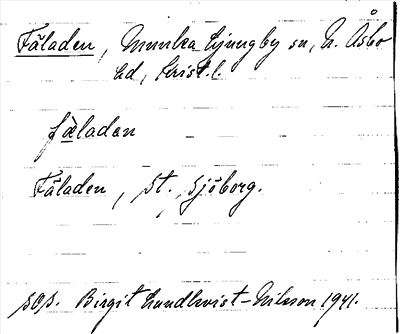 Fäladen, Munka Ljungby sn, N. Åsbo
hd, Krist. l.
fäladen
Fäladen, st., Sjöborg.
sop. Birgit Lundkvist-Nilsson 1941.